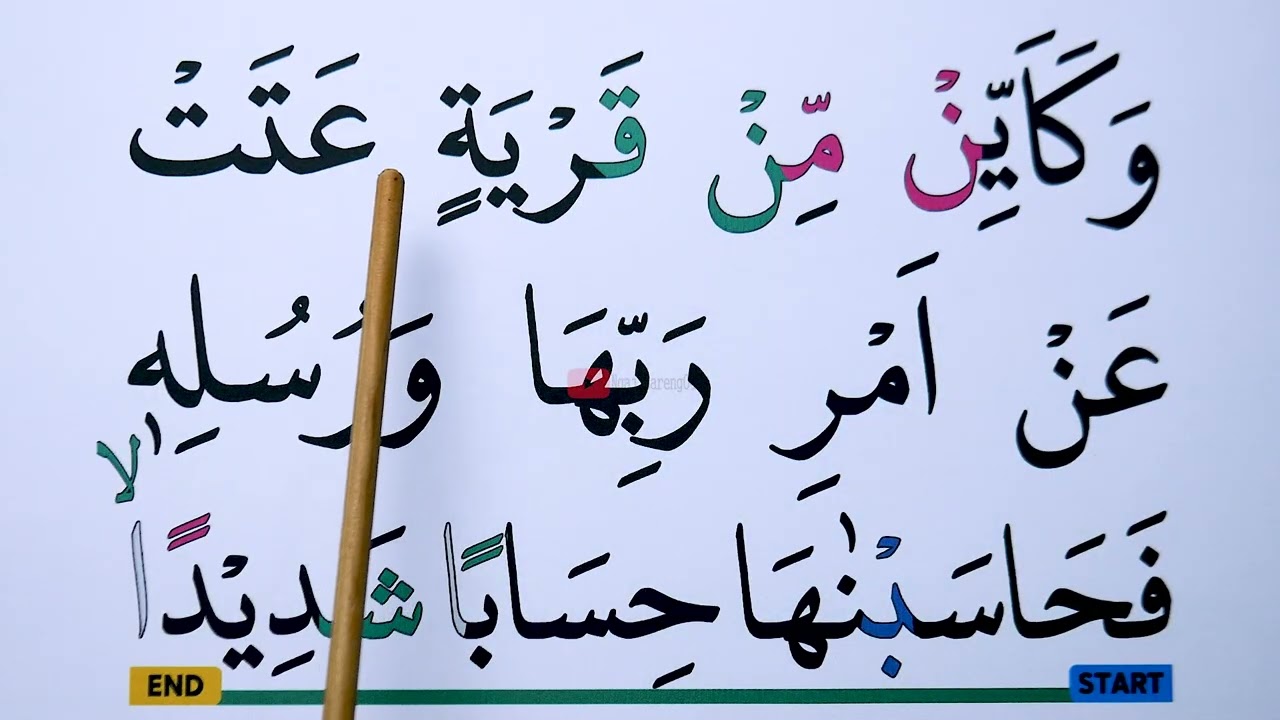 وَكَاَيِّنْ مِّنْ قَرْيَةٍ عَتَتْ
عَنْ اَمْرِ رَبِّهَا وَرُسُلِهٖ ۙ
فَحَاسَبْنٰهَا حِسَابًا شَدِيْدًا
END START